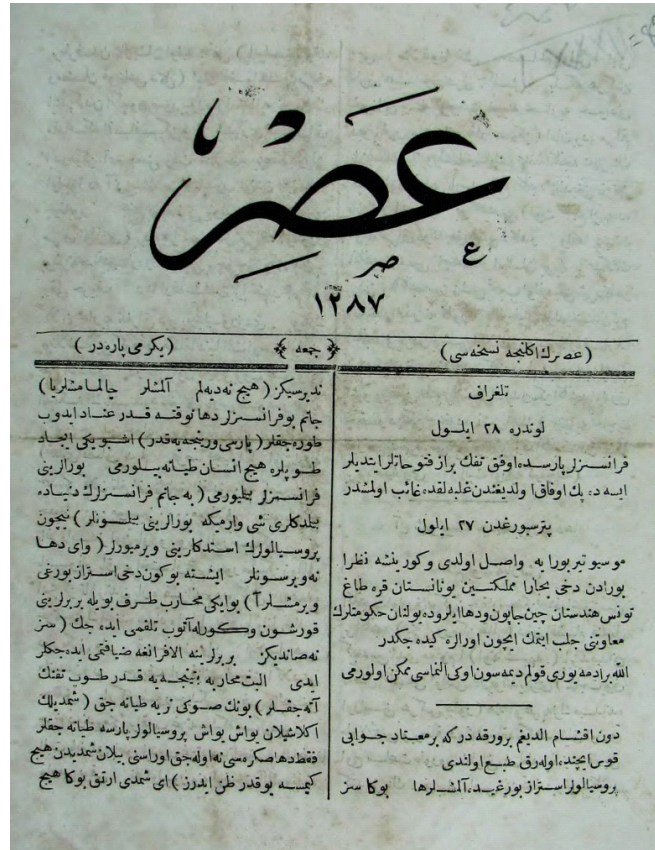 عصر
ع صر
١٢٨٧
(عصرك اكلنجه نسخه سى)
جمعه
(يكرمى پاره در)
تلغراف
لوندره ٢٨ ايلول
فرانسزلر پارسده اوفق تفك براز فتوحاتلر ايتديلر
ايسه ده پك اوفاق اولديغندن غلبه لقده غائب اولمشدر
پترسبورغدن ٢٧ ايلول
موسيو تيربورا يه واصل اولدى وكورينشه نظرا
بورادن دخى بخارا مملكتين يونانستان قره طاغ
تونس هندستان چين جاپون ودها ايلروده بولنان حكومتلرك
معاونتى جلب ايتمك ايچون اورالره كيده جكدر
الله برادمه يورى قولم ديمه سون اوكى التماسى ممكن اولورمى
دون اقشام الديغم برورقه در كه بر معتاد جوابى
قوس ايچنده اوله رق طبع اولندى
پروسيالولر استراز بورغيده آلمشلرها بوكا سز
نديرسيكز (هيچ نه ديه لم آلمشلر چالمامشلريا)
جانم بوفرانسزلر دها نوقته قدر عناد ايدوب
طوره جقلر (پارسى ويرنجه يه قدر) اشبو يكى ايجاد
طوپلره هيچ انسان طيانه بيلورمى بورالرينى
فرانسزلر بيليورمى (به جانم فرانسزلرك دنياده
بيلدكلرى شى وارميكه بورالرينى بيلسونلر) نيچون
پروسيالولرك استدكلرينى ويرميورلر (واى دها
نه ويرسونلر ايشته بوكون دخى استراز بورغى
ويرمشلر آ) بوايكى محارب طرف بويله بربرلرينى
قورشون وكورله آتوب تلقمى ايده جك (سز
نه صانديكز بربرلرينه الافرانغه ضيافتمى ايده جكلر
ايدى البت محاربه بتنجه يه قدر طوپ تفنك
آته جقلر) بونك صوكى نره يه طيانه جق (شمديلك
اكلاشيلان يواش يواش پروسيالولر پارسه طيانه جقلر
فقط دها صكره سى نه اوله جق اوراسنى بيلان شمديدن هيچ
كيمسه يوقدر ظن ايدرز) اى شمدى ارتق بوكا هيچ